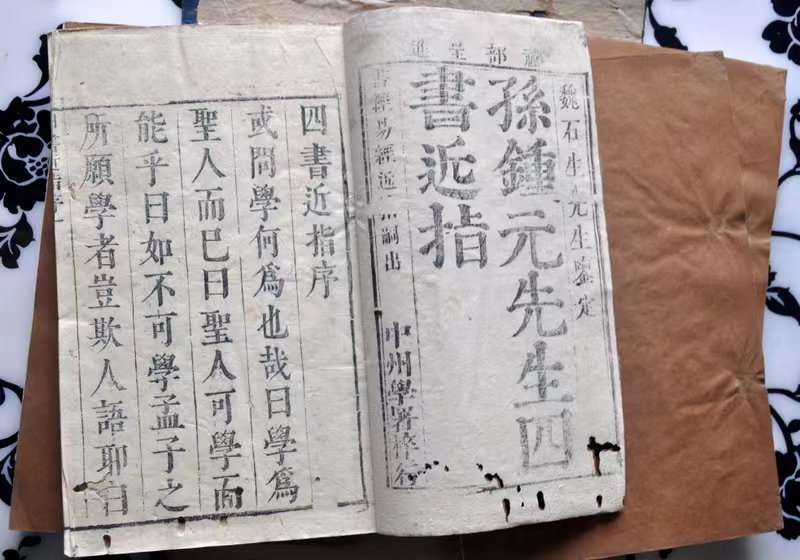 禮部呈進
魏石生先生鑒定
孫鍾元先生四
書近指
書經易經近指嗣出
中州學署梓行
四書近指序
或問學何爲也哉曰學爲
聖人而已曰聖人可學而
能乎曰如不可學孟子之
所願學者豈欺人語耶曰